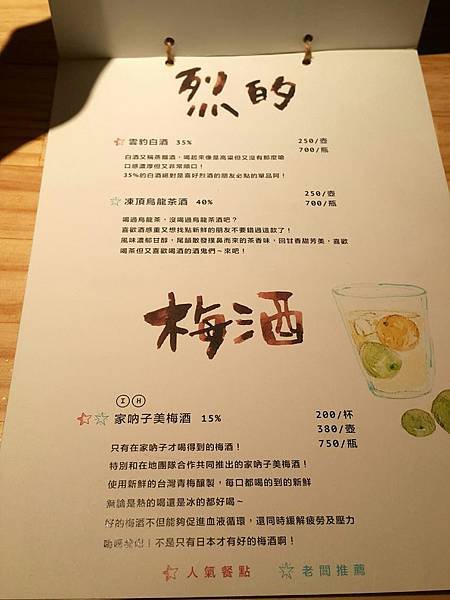 烈的
雲豹白酒 35% 250/壺
700/瓶
白酒又稱蒸餾酒，喝起來像是高粱但又沒有那麼嗆
口感濃厚但又非常順口！
35%的白酒絕對是喜好烈酒的朋友必點的單品阿！
凍頂烏龍茶酒 40% 250/壺
700/瓶
喝過烏龍茶，沒喝過烏龍茶酒吧？
喜歡酒感重又想找點新鮮的朋友不要錯過這款了！
風味濃郁甘醇，尾韻散發撲鼻而來的茶香味，回甘香甜芳美，喜歡
喝茶但又喜歡喝酒的酒鬼們～來吧！
梅酒
I H
家吶子美梅酒 15% 200/杯
380/壺
750/瓶
只有在家吶子才喝得到的梅酒！
特別和在地團隊合作共同推出的家吶子美梅酒！
使用新鮮的台灣青梅釀製，每口都喝的到的新鮮
無論是熱的喝還是冰的都好喝～
好的梅酒不但能夠促進血液循環，還同時緩解疲勞及壓力
不是只有日本才有好的梅酒啊！
人氣餐點 老闆推薦